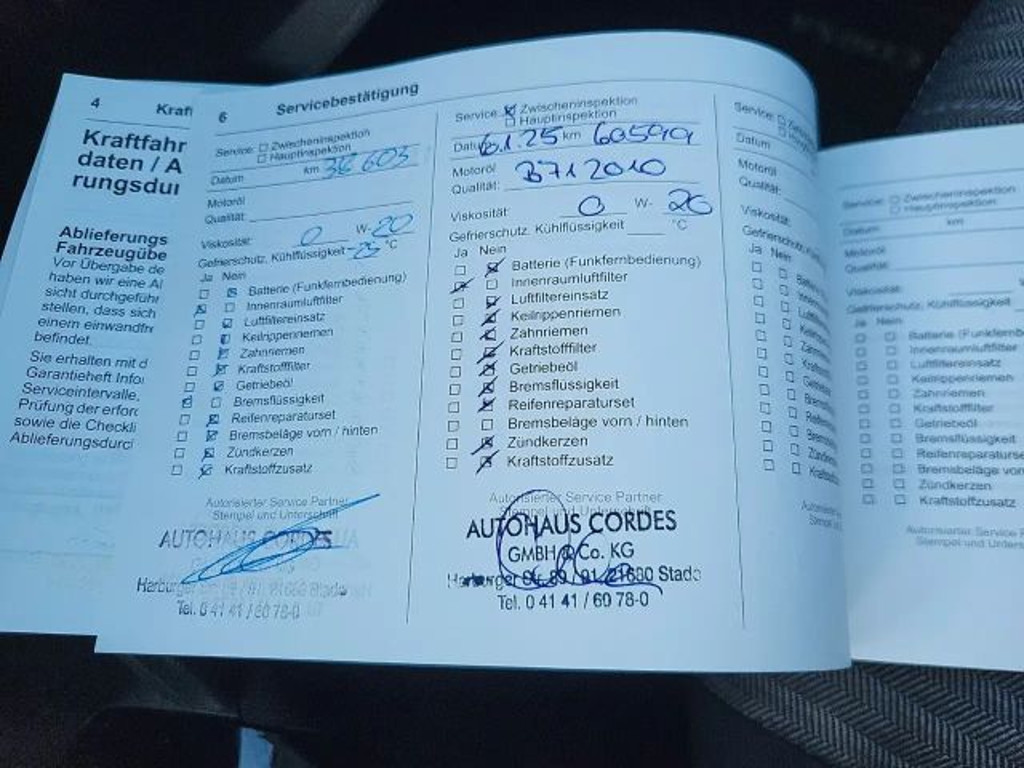 4 Kraft
Kraftfahr
daten / A
rungsdui
Ablieferungs
Fahrzeugübe
Vor Übergabe de
haben wir eine Al
sicht durchgeführ
stellen, dass sich
einem einwandfre
befindet.
Sie erhalten mit d
Garantieheft Infor
Serviceintervalle,
Prüfung der erforc
sowie die Checkli
Ablieferungsdurcl
6 Servicebestätigung
Service: Zwischeninspektion
Hauptinspektion
Datum km 36 603
Motoröl
Qualität:
Viskosität 0 W- 20
Gefrierschutz, Kühlflüssigkeit -25 °C
Ja Nein
Batterie (Funkfernbedienung)
Innenraumluftfilter
Luftfiltereinsatz
Keilrippenriemen
Zahnriemen
Kraftstofffilter
Getriebeöl
Bremsflüssigkeit
Reifenreparaturset
Bremsbeläge vorn / hinten
Zündkerzen
Kraftstoffzusatz
Autorisierter Service Partner
Stempel und Unterschrift
AUTOHAUS CORDES
Harburger
Tel. 0 41 41 / 60 78-0
Service: Zwischeninspektion
Hauptinspektion
Datum 6.1.25 km 60599
Motoröl
Qualität: B71 2010
Viskosität 0 W- 20
Gefrierschutz, Kühlflüssigkeit °C
Ja Nein
Batterie (Funkfernbedienung)
Innenraumluftfilter
Luftfiltereinsatz
Keilrippenriemen
Zahnriemen
Kraftstofffilter
Getriebeöl
Bremsflüssigkeit
Reifenreparaturset
Bremsbeläge vorn / hinten
Zündkerzen
Kraftstoffzusatz
Autorisierter Service Partner
Stempel und Unterschrift
AUTOHAUS CORDES
GMBH & Co. KG
Harburger Str. 89 / 91, 21680 Stade
Tel. 0 41 41 / 60 78-0
Service:
Datum
Motoröl
Qualität:
Viskosität
Gefrierschutz,
Ja Nein
Batterie
Innenraum
Luftfilter
Keilrippen
Zahnriemen
Kraftstoff
Getriebe
Bremsfl
Reifen
Brems
Zünd
Kraft
Service: Zwischeninspektion
Hauptinspektion
Datum km
Motoröl
Qualität:
Viskosität:
Gefrierschutz, Kühlflüssigkeit
Ja Nein
Batterie (Funkfernb
Innenraumluftfilter
Luftfiltereinsatz
Keilrippenriemen
Zahnriemen
Kraftstofffilter
Getriebeöl
Bremsflüssigkeit
Reifenreparaturse
Bremsbeläge vorn
Zündkerzen
Kraftstoffzusatz
Autorisierter Service P
Stempel und Unters